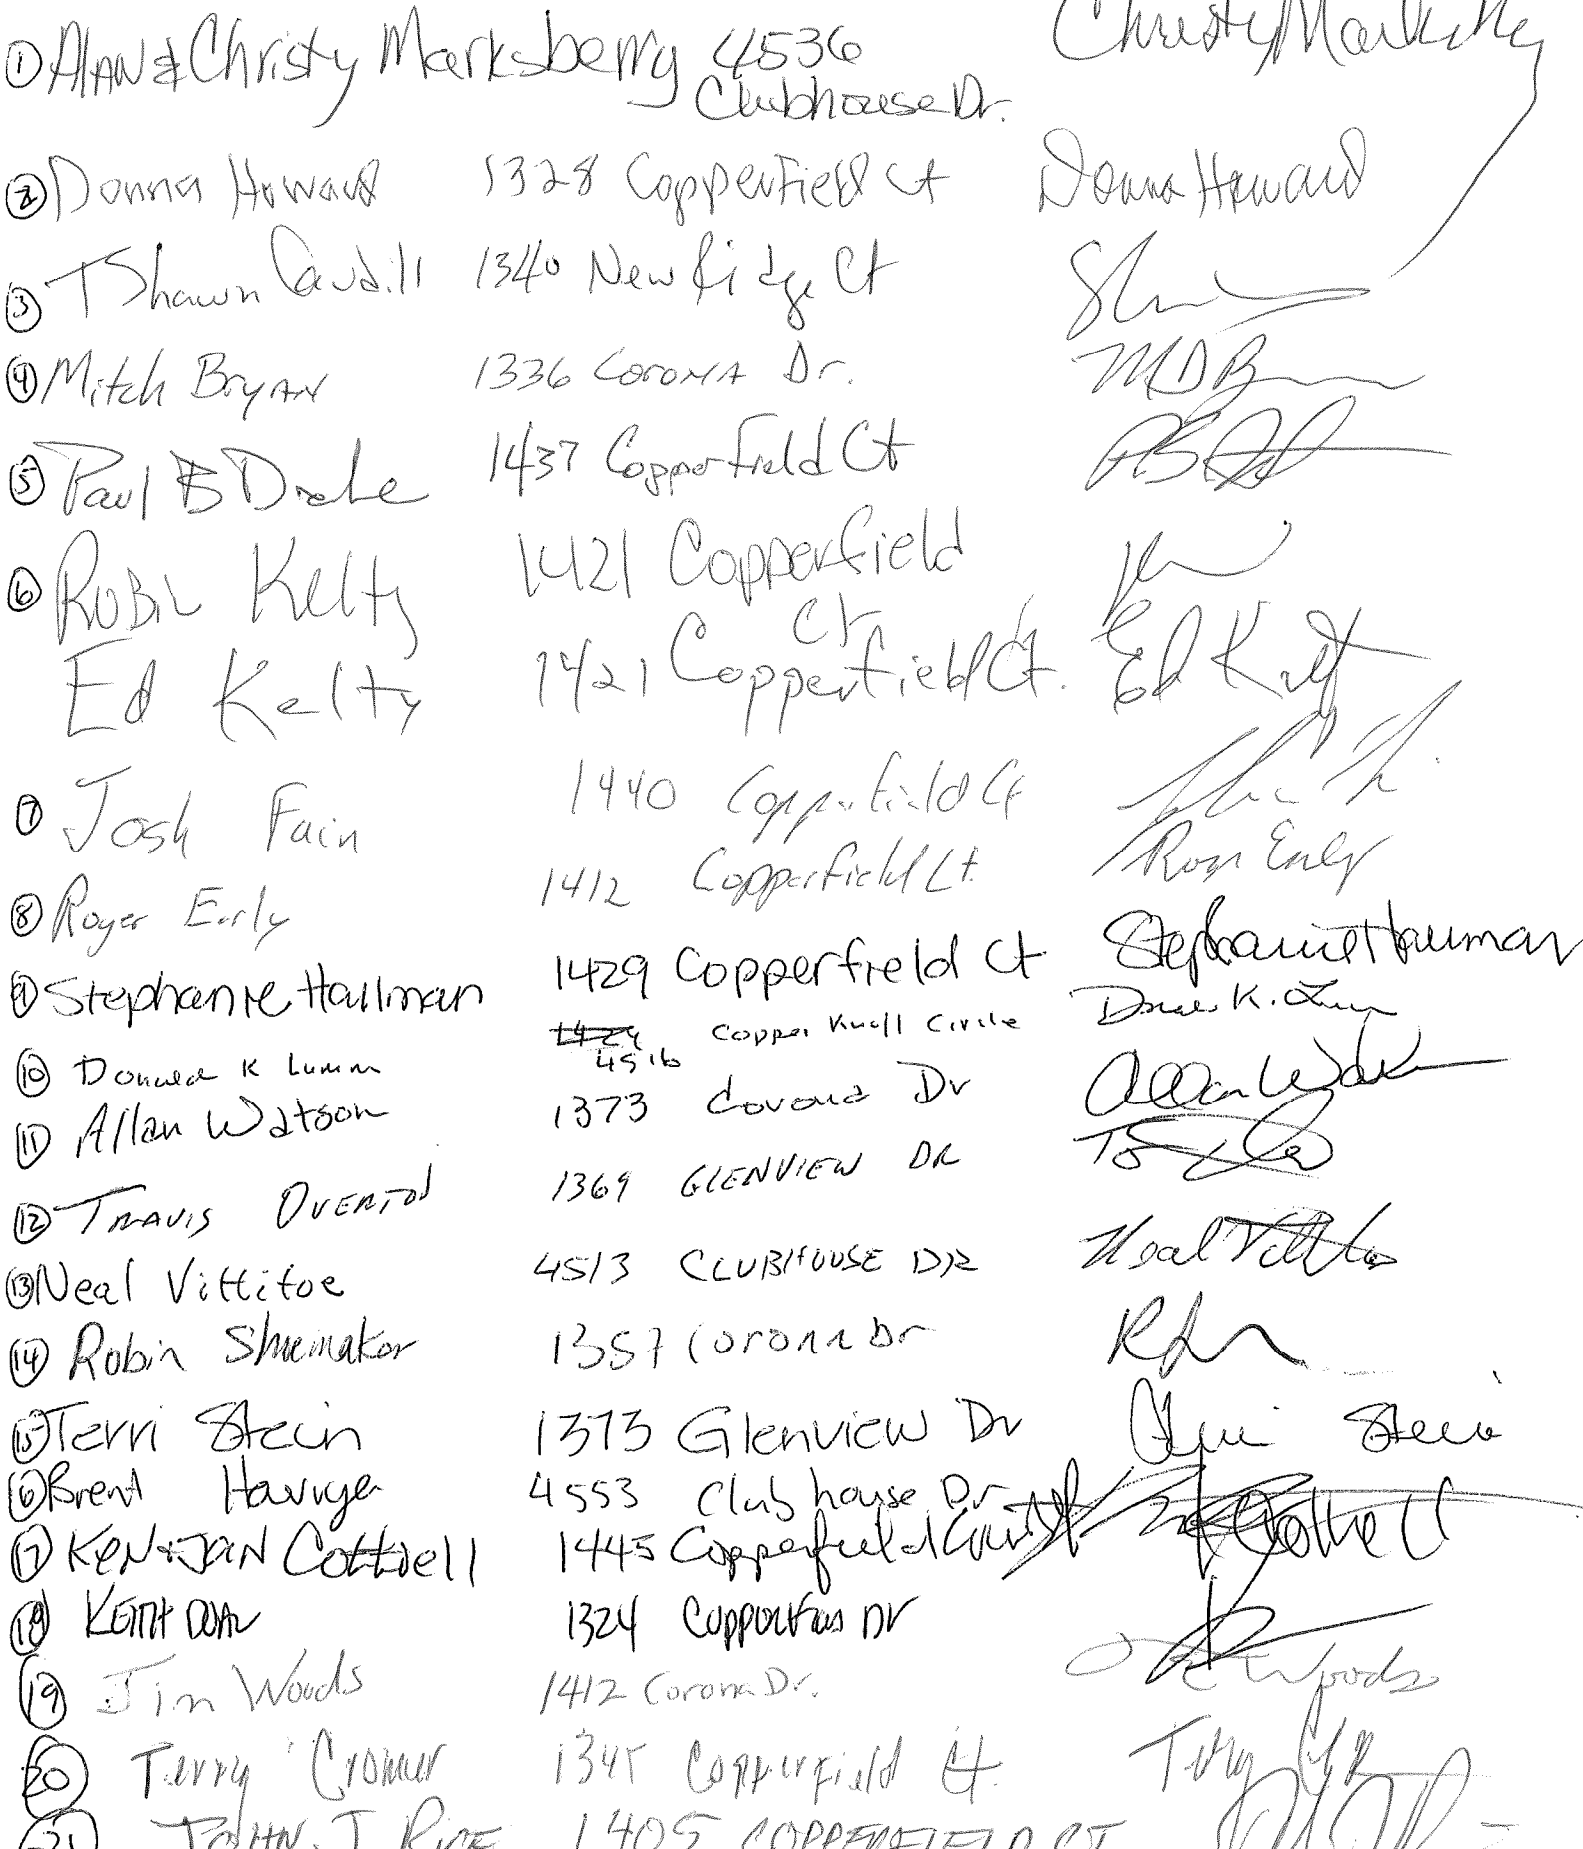 ① Alan & Christy Marksberry 4536 Clubhouse Dr. Christy Marksberry
② Donna Howard 1328 Copperfield Ct Donna Howard
③ T Shawn Caudill 1340 New Ridge Ct
④ Mitch Bryan 1336 Corona Dr. MDB
⑤ Paul B Drake 1437 Copperfield Ct
⑥ Robin Kelty 1421 Copperfield Ct
Ed Kelty 1421 Copperfield Ct. Ed Kelty
⑦ Josh Fain 1440 Copperfield Ct
⑧ Roger Early 1412 Copperfield Ct. Roger Early
⑨ Stephanie Hallman 1429 Copperfield Ct Stephanie Hallman
⑩ Donald K Lumm 4516 Copper Knoll Circle Donald K. Lumm
⑪ Allan Watson 1373 Corona Dr Allan Watson
⑫ Travis Overton 1369 Glenview Dr
⑬ Neal Vittitoe 4513 Clubhouse Dr Neal Vittitoe
⑭ Robin Shuemaker 1357 Corona Dr
⑮ Terri Stein 1373 Glenview Dr Terri Stein
⑯ Brent 4553 Clubhouse Dr
⑰ Ken & Jan Cottrell 1445 Copperfield Court Cottrell
⑱ Keith 1324 Dr
⑲ Jim Woods 1412 Corona Dr. Woods
⑳ Terry Cromer 1345 Copperfield Ct. Terry
21 John J 1405 Copperfield Ct